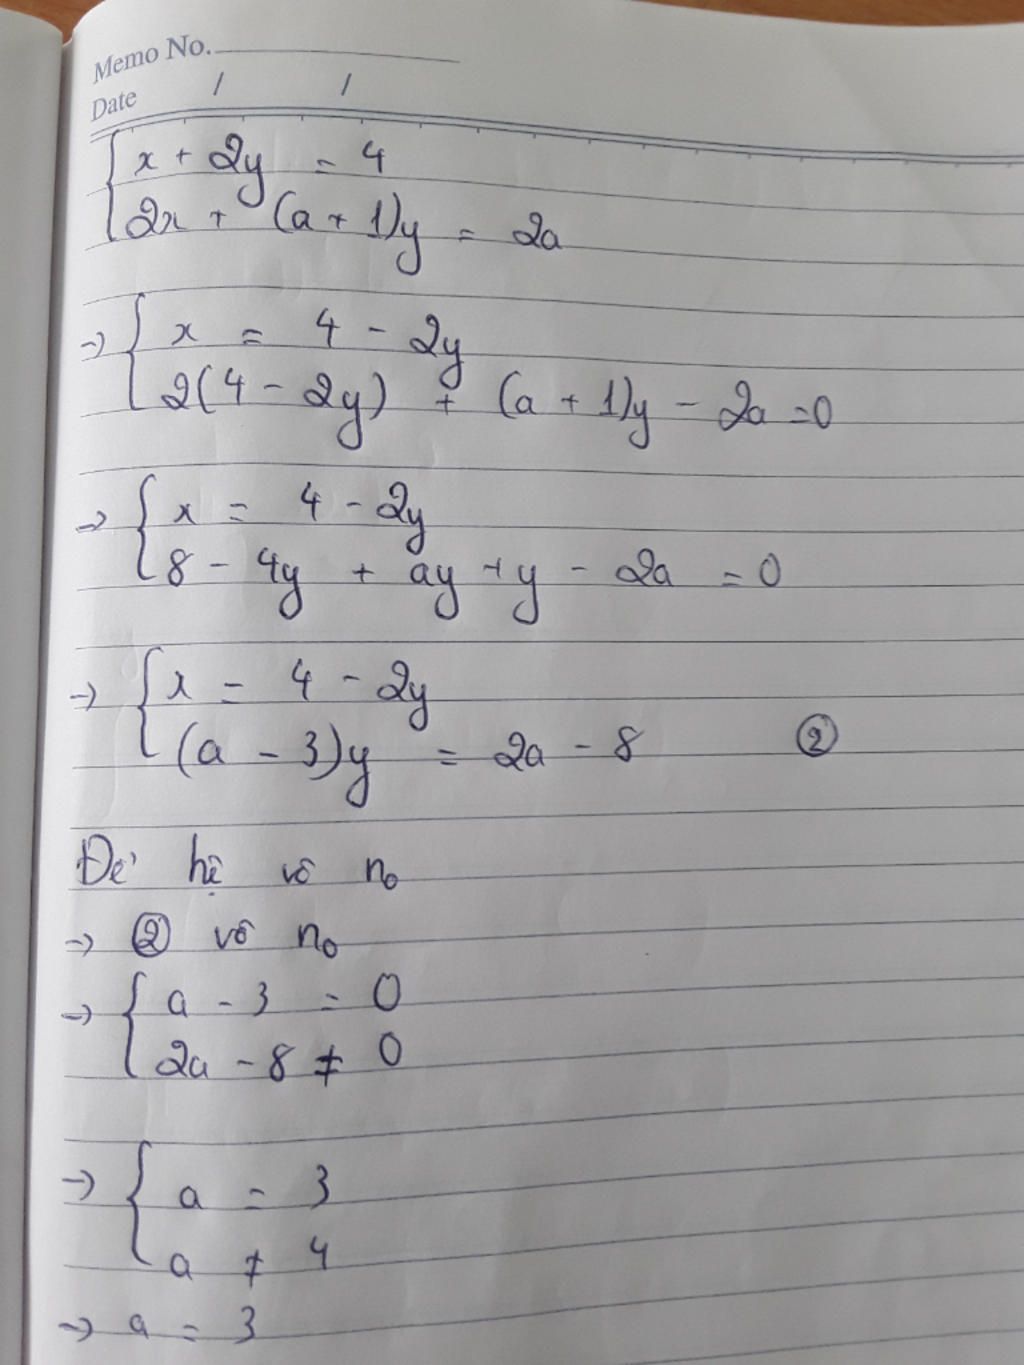 Memo No.
Date / /
{ x + 2y = 4
2x + (a + 1)y = 2a
→ { x = 4 - 2y
2(4 - 2y) + (a + 1)y - 2a = 0
→ { x = 4 - 2y
8 - 4y + ay + y - 2a = 0
→ { x = 4 - 2y
(a - 3)y = 2a - 8 ②
Để hệ vô n₀
→ ② vô n₀
→ { a - 3 = 0
2a - 8 ≠ 0
→ { a = 3
a ≠ 4
→ a = 3